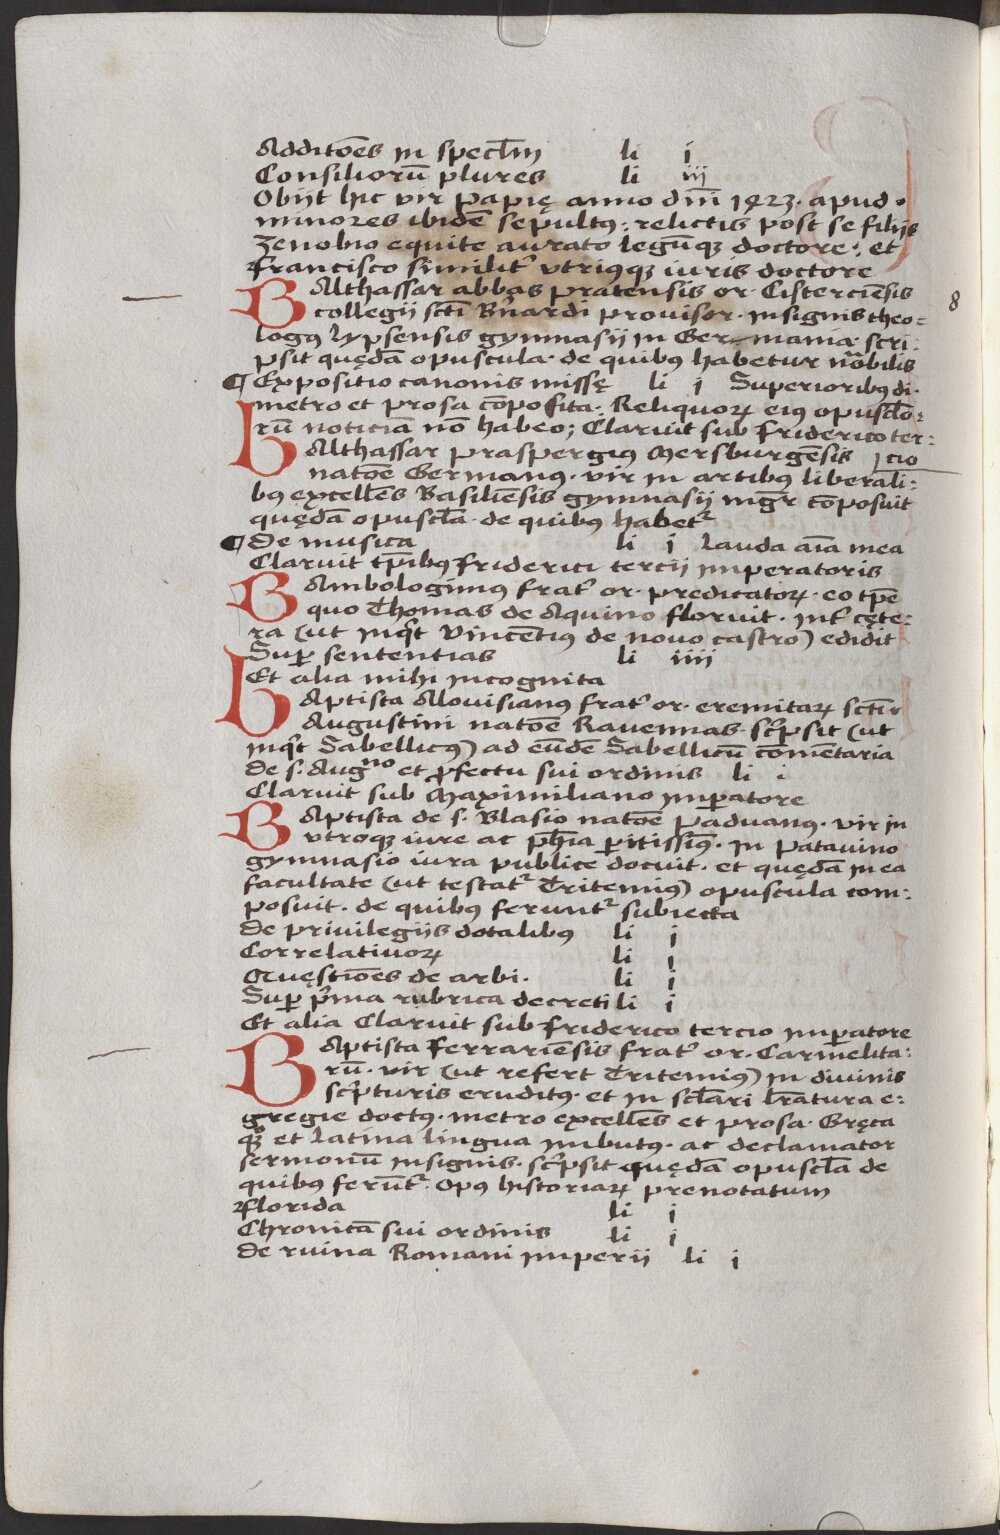 Additōes in specl̄m li i
Consiliorū plures li iij
Obijt hic vir Papię anno dn̄i 1423. apud
minores ibidē sepultꝰ: relictis post se filijs
Zenobio equite aurato legūqꝫ doctore: et
Francisco similit̉ vtriusqꝫ iuris doctore
BAlthassar abbas pratensis or. Cisterciēsis
collegii sct̄i Bn̄ardi prouisor. insignis theo=
logꝰ lypsensis gymnasij in Germania. scri:
psit quędā opuscula. de quibꝰ habetur nōbilis
¶ Expositio canonis missę li i Superioribꝰ di.
metro et prosa cōposita. Reliquorꝝ eiꝰ opuscl̄o:
rū noticiā nō habeo; Claruit sub Friderico ter:
cio
BAlthassar praspergius Mersburgēsis
natōe Germanus. vir in artibꝰ liberali:
bꝰ excellēs Basiliēsis gymnasij mgr̄ cōposuit
quędā opuscl̄a. de quibꝰ habet̉
¶ De musica li i Lauda aīa mea
Claruit tp̄ibꝰ Friderici tercij imperatoris
BAmbologinus frat̉ or. predicatorꝝ. eo tp̄e
quo Thomas de Aquino floruit. int̉ cęte:
ra (ut inq̄t Vincētiꝰ de nouo castro) edidit
Suꝑ sententias li iiij
Et alia mihi incognita
BAptista Alouisianus frat̉ or. eremitarꝝ sct̄i
Augustini natōe Rauennas. sc̄psit (ut
inq̄t Sabellicꝰ) ad eūdē Sabellicū cōmētaria
de s. Augⁿᵒ et ꝓfectu sui ordinis li i
Claruit sub Maximiliano imꝑatore
BAptista de s. Blasio natōe Paduanꝰ. vir in
vtroqꝫ iure ac ph̄ia ꝑitissimꝰ. in Patauino
gymnasio iura publice docuit. et quędā in ea
facultate (ut testat̉ Tritemiꝰ) opuscula com:
posuit. de quibꝰ ferunt̉ subiecta
De priuilegijs dotalibus li i
Correlatiuorꝝ li i
Quęstiōes de arbi. li i
Suꝑ p̄ma rubrica decreti li i
Et alia Claruit sub Friderico tercio imꝑatore
BAptista Ferrariēsis frat̉ or. Carmelita:
rū. vir (ut refert Tritemiꝰ) in diuinis
sc̄pturis eruditꝰ. et in scl̄ari lr̄atura e:
gregie doctꝰ. metro excellēs et prosa. Gręca
qꝫ et latina lingua imbutꝰ. ac declamator
sermonū insignis. sc̄psit quędā opuscl̄a de
quibꝰ ferūt̉. Opꝰ historiarꝝ prenotatum
Florida li i
Chronicā sui ordinis li i
De ruina Romani imperij li i
8